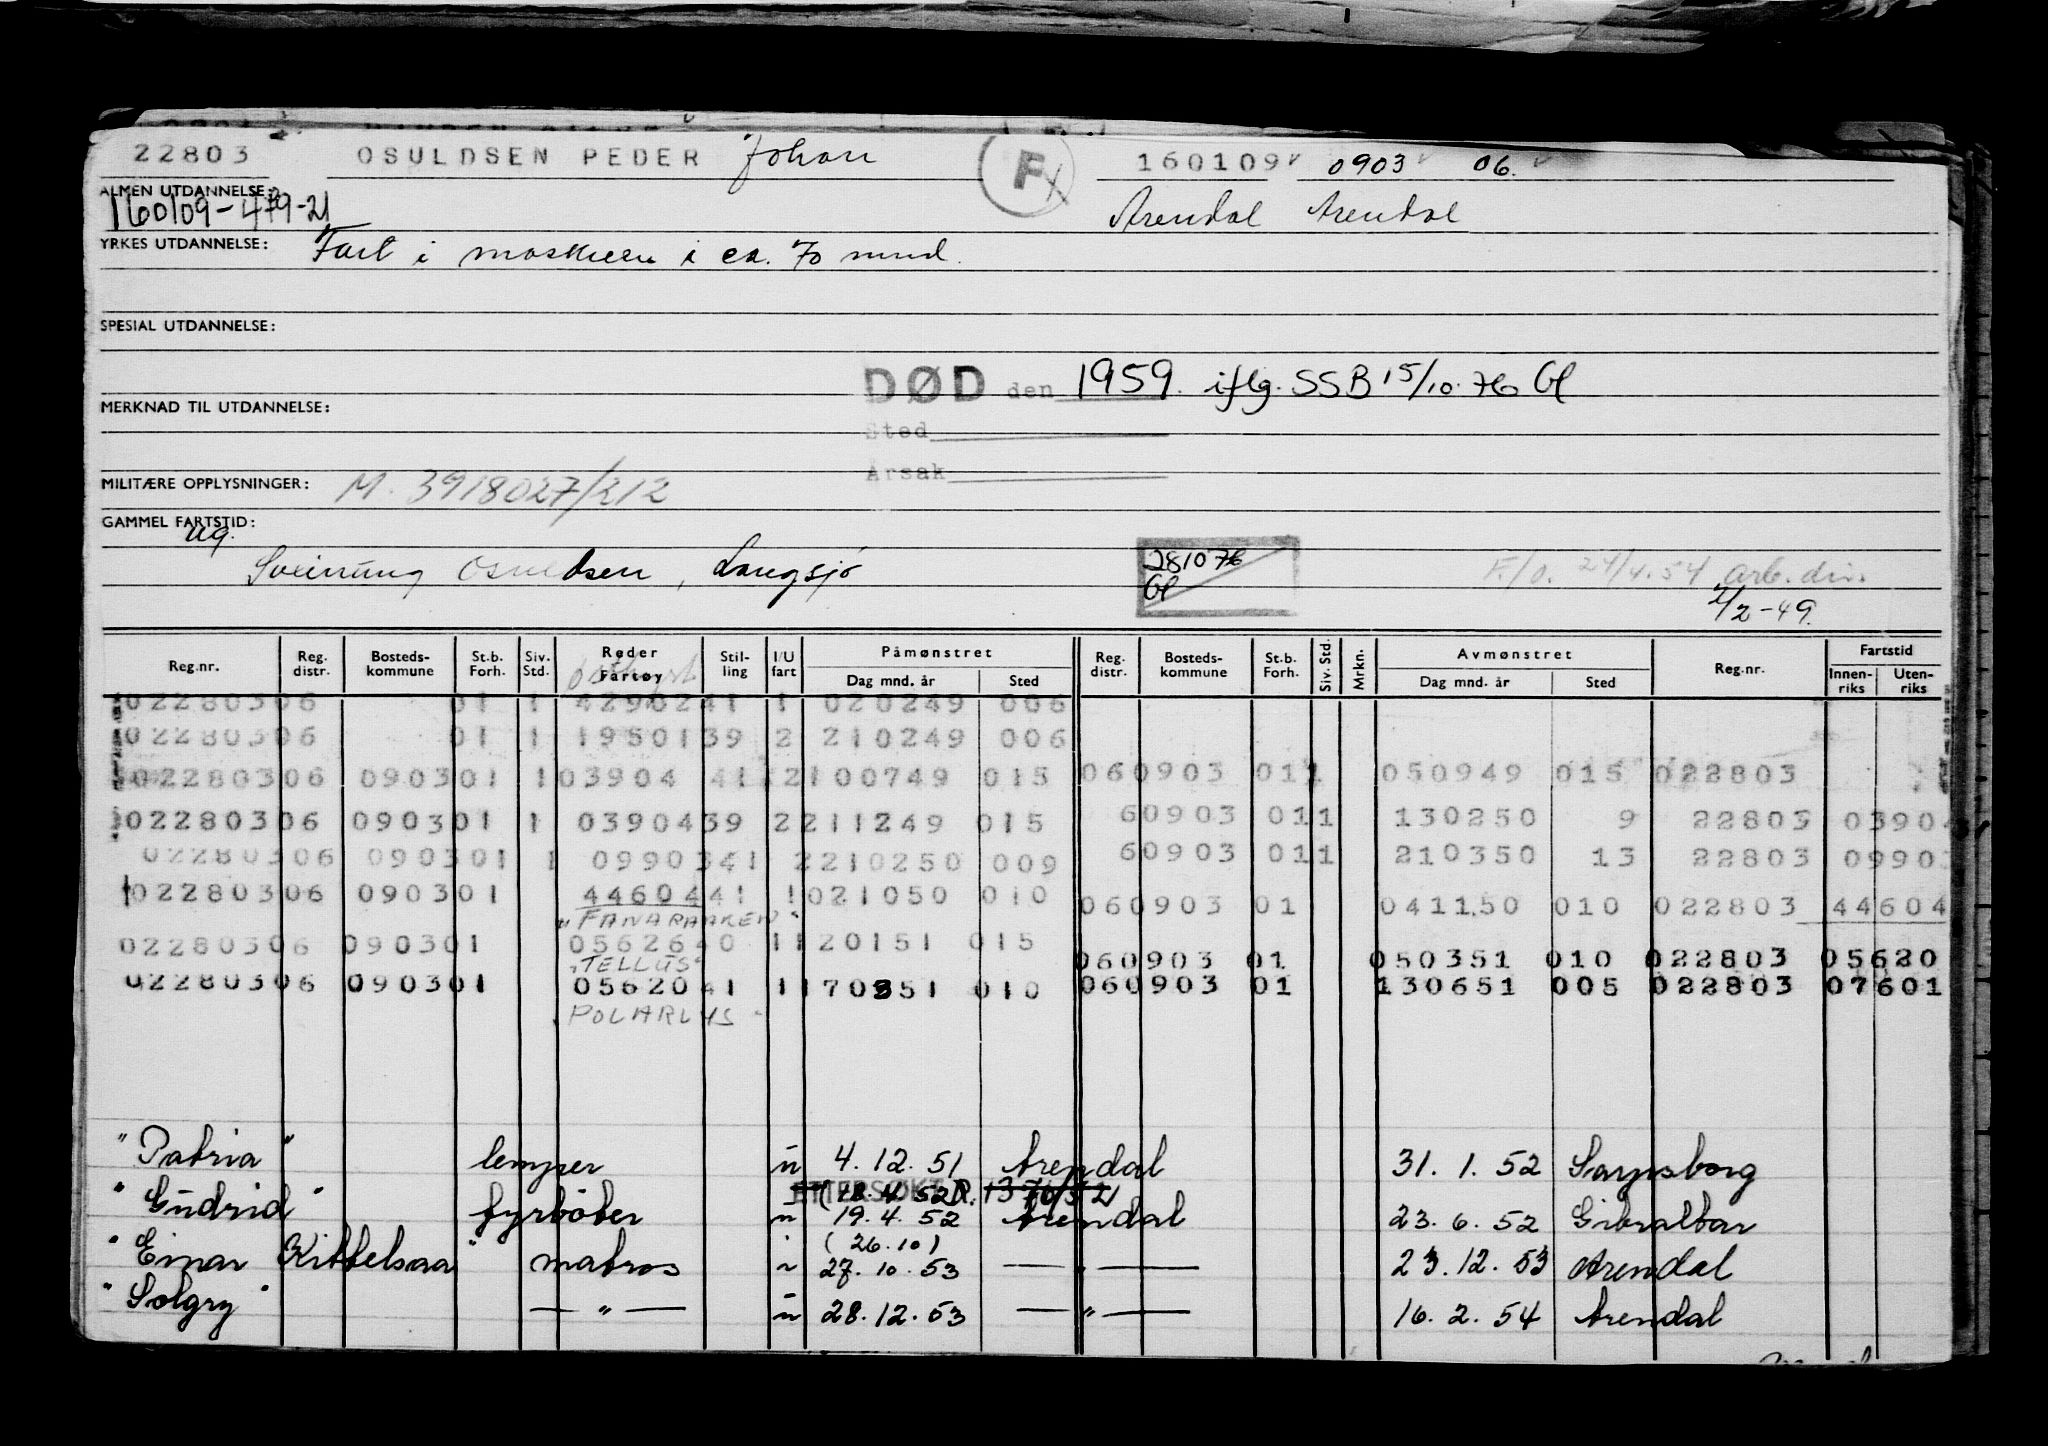 22803 OSULDSEN PEDER Johan F 160109 0903 06.
ALMEN UTDANNELSE:
160109-479-21
Arendal Arendal
YRKES UTDANNELSE: Fart i maskinen i ca. 70 mnd.
SPESIAL UTDANNELSE:
DØD den 1959. iflg. SSB 15/10.76 Gl
MERKNAD TIL UTDANNELSE:
Sted
Årsak
MILITÆRE OPPLYSNINGER: M. 3918027/212
GAMMEL FARTSTID:
ug.
Sveinung Osuldsen, Langsjø
281076
Gl
F./o. 24/4.54 arb.dir.
2/2-49.
Reg.nr. Reg. distr. Bosteds-kommune St.b. Forh. Siv. Std. Røder Fartøy Stil-ling I/U fart Påmønstret Dag mnd. år Sted Reg. distr. Bosteds-kommune St.b. Forh. Siv. Std. Mrkn. Avmønstret Dag mnd. år Sted Reg.nr. Fartstid Innen-riks Uten-riks
022803 06 01 1 42902 41 1 020249 006
022803 06 01 1 19501 39 2 210249 006
022803 06 0903 01 1 03904 41 2 100749 015 06 0903 01 1 050949 015 022803
022803 06 0903 01 1 03904 39 2 211249 015 6 0903 01 1 130250 9 22803 03904
022803 06 0903 01 1 09903 41 2 210250 009 6 0903 01 1 210350 13 22803 0990
022803 06 0903 01 44604 41 1 021050 010 06 0903 01 041150 010 022803 44604
"FANARAAKEN"
022803 06 0903 01 05626 40 1 120151 015 06 0903 01 050351 010 022803 05620
"TELLUS"
022803 06 0903 01 05620 41 1 170351 010 06 0903 01 130651 005 022803 07601
"POLARLYS"
"Patria" lemper u 4.12.51 Arendal 31.1.52 Sarpsborg
ETTERSØKT (18.4.52 R. 1370/52)
"Gudrid" fyrbøter u 19.4.52 Arendal 23.6.52 Gibraltar
(26.10)
"Einar Kittelsaa" matros " 27.10.53 — " — 23.12.53 Arendal
"Solgry" — " — u 28.12.53 — " — 16.2.54 Arendal